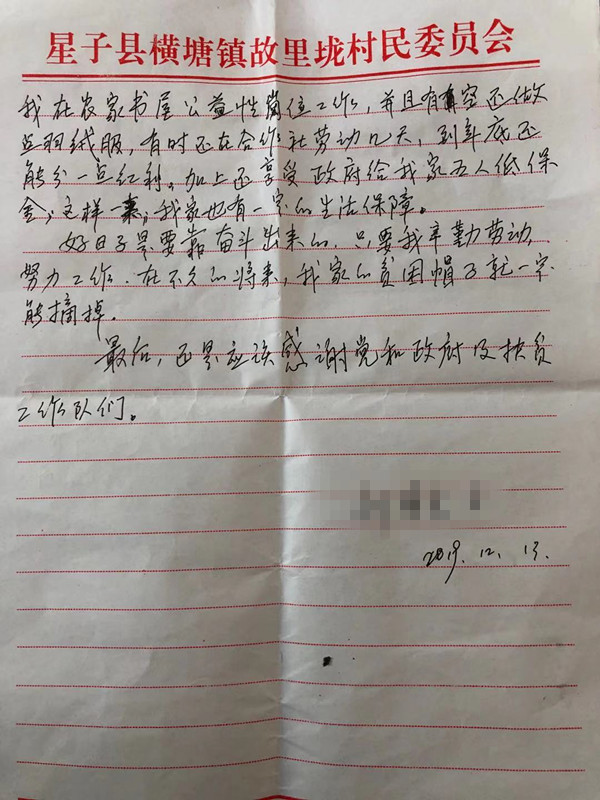 星子县横塘镇故里垅村民委员会
我在农家书屋公益性岗位工作,并且有空还做
点羽绒服,有时还在合作社劳动几天,到年底还
能分一点红利。加上还享受政府给我家五人低保
金,这样一来,我家也有一定的生活保障。
好日子是要靠奋斗出来的.只要我辛勤劳动,
努力工作.在不久的将来,我家的贫困帽子就一定
能摘掉.
最后,还是应该感谢党和政府及扶贫
工作队们。
2019.12.13.